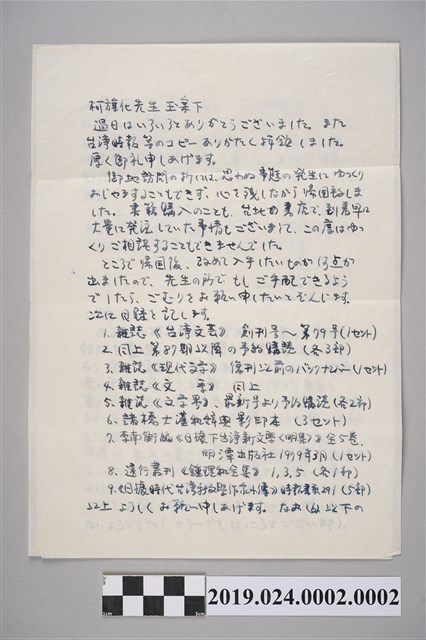 柯旗化先生 玉案下
過日はいろいろとありがとうございました。また
台湾時報等のコピーありがたく拝領しました。
厚く御礼申しあげます。
御地訪問の折には、思わぬ事態の発生にゆっくり
おじゃますることもできず、心を残しながら帰国致しま
した。書籍購入のことも、台北の書店で、到着早々
大量に発注していた事情もございまして、この度はゆっ
くりご相談することもできませんでした。
ところで帰国後、改めて入手したいものが何点か
出ましたので、先生の所でもしご手配できるよう
でしたら、ごむりをお願い申したいと存じます。
次に目録を記します。
1. 雑誌《台湾文芸》 創刊号〜第79号(1セント)
2. 同上 第87期以降の予約購読(各3部)
3. 雑誌《現代文学》復刊以前のバックナンバー(1セント)
4. 雑誌《文 季》 同上
5. 雑誌《文学界》最新号より予約購読(各2部)
6. 諸橋大漢和辞典影印本 (3セント)
7. 李南衡編《日據下台湾新文学<明集>》全5巻、
明潭出版社1979年3月(1セント)
8. 遠行叢刊《鍾理和全集》1, 3, 5 (各1部)
9. 《日據時代台湾新文学作家小傳》時報書系291 (5部)
以上よろしくお願い申しあげます。なお(6)以下の
5cm
2019.024.0002.0002